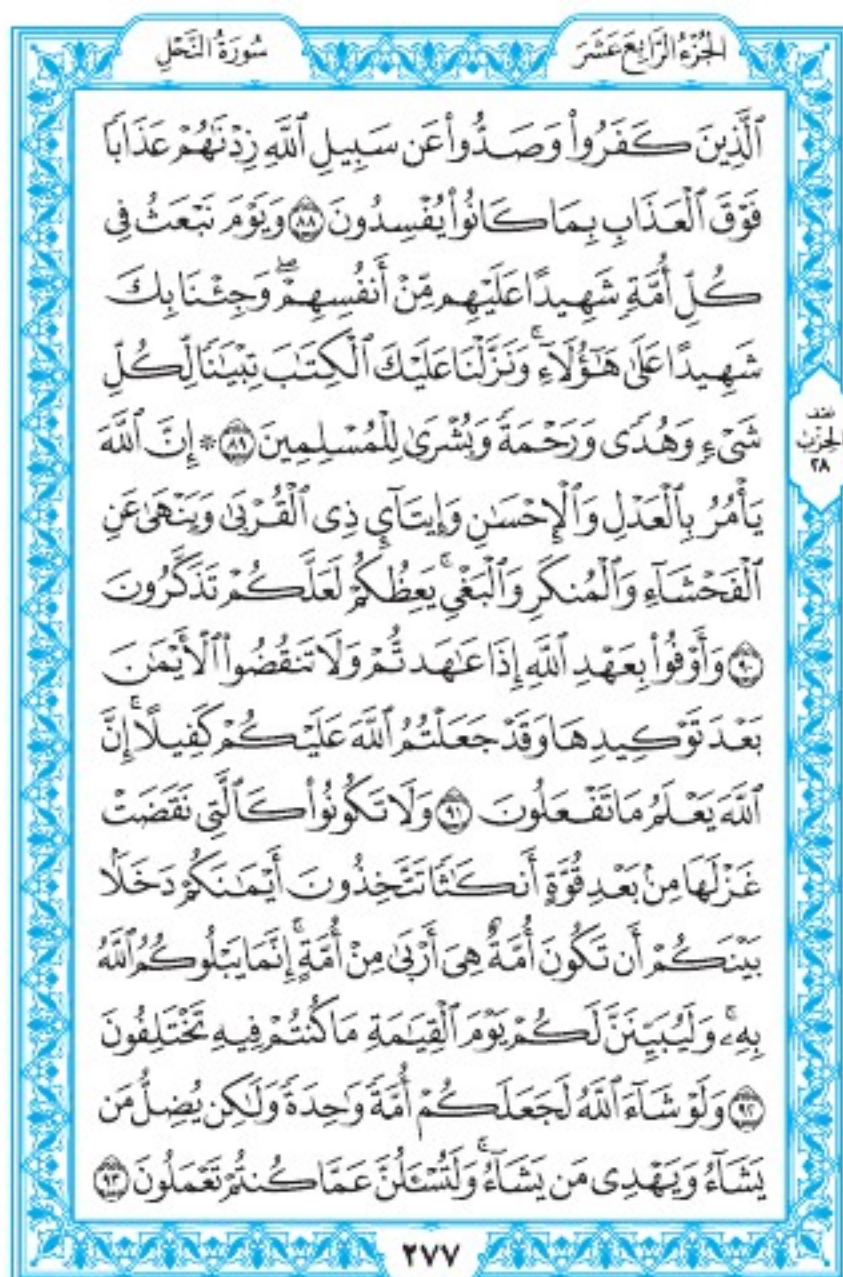 الجُزْءُ الرَّابِعَ عَشَرَ
سُورَةُ النَّحْلِ
ٱلَّذِينَ كَفَرُواْ وَصَدُّواْ عَن سَبِيلِ ٱللَّهِ زِدْنَٰهُمْ عَذَابًا
فَوْقَ ٱلْعَذَابِ بِمَا كَانُواْ يُفْسِدُونَ ٨٨ وَيَوْمَ نَبْعَثُ فِى
كُلِّ أُمَّةٍ شَهِيدًا عَلَيْهِم مِّنْ أَنفُسِهِمْۖ وَجِئْنَا بِكَ
شَهِيدًا عَلَىٰ هَٰٓؤُلَآءِۚ وَنَزَّلْنَا عَلَيْكَ ٱلْكِتَٰبَ تِبْيَٰنًا لِّكُلِّ
شَىْءٍ وَهُدًى وَرَحْمَةً وَبُشْرَىٰ لِلْمُسْلِمِينَ ٨٩ * إِنَّ ٱللَّهَ
نصف
الحزب
٢٨
يَأْمُرُ بِٱلْعَدْلِ وَٱلْإِحْسَٰنِ وَإِيتَآيِٕ ذِى ٱلْقُرْبَىٰ وَيَنْهَىٰ عَنِ
ٱلْفَحْشَآءِ وَٱلْمُنكَرِ وَٱلْبَغْىِۚ يَعِظُكُمْ لَعَلَّكُمْ تَذَكَّرُونَ
٩٠ وَأَوْفُواْ بِعَهْدِ ٱللَّهِ إِذَا عَٰهَدتُّمْ وَلَا تَنقُضُواْ ٱلْأَيْمَٰنَ
بَعْدَ تَوْكِيدِهَا وَقَدْ جَعَلْتُمُ ٱللَّهَ عَلَيْكُمْ كَفِيلًاۚ إِنَّ
ٱللَّهَ يَعْلَمُ مَا تَفْعَلُونَ ٩١ وَلَا تَكُونُواْ كَٱلَّتِى نَقَضَتْ
غَزْلَهَا مِنۢ بَعْدِ قُوَّةٍ أَنكَٰثًا تَتَّخِذُونَ أَيْمَٰنَكُمْ دَخَلًۢا
بَيْنَكُمْ أَن تَكُونَ أُمَّةٌ هِىَ أَرْبَىٰ مِنْ أُمَّةٍۚ إِنَّمَا يَبْلُوكُمُ ٱللَّهُ
بِهِۦۚ وَلَيُبَيِّنَنَّ لَكُمْ يَوْمَ ٱلْقِيَٰمَةِ مَا كُنتُمْ فِيهِ تَخْتَلِفُونَ
٩٢ وَلَوْ شَآءَ ٱللَّهُ لَجَعَلَكُمْ أُمَّةً وَٰحِدَةً وَلَٰكِن يُضِلُّ مَن
يَشَآءُ وَيَهْدِى مَن يَشَآءُۚ وَلَتُسْـَٔلُنَّ عَمَّا كُنتُمْ تَعْمَلُونَ ٩٣
٢٧٧